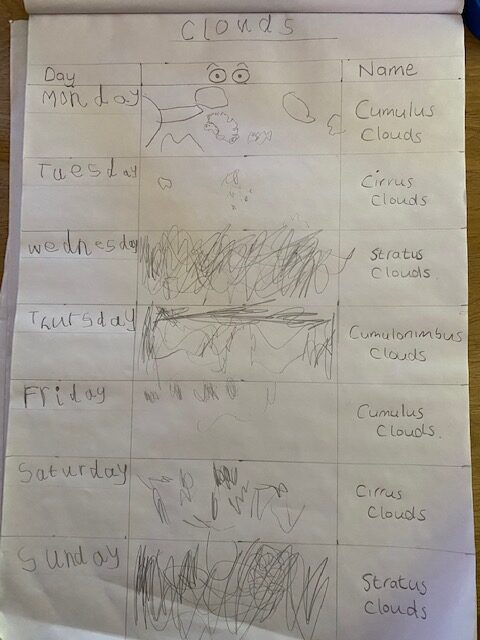 Clouds
Day Name
Monday Cumulus
Clouds
Tuesday Cirrus
Clouds
Wednesday Stratus
Clouds
Thursday Cumulonimbus
Clouds
Friday Cumulus
Clouds
Saturday Cirrus
Clouds
Sunday Stratus
Clouds